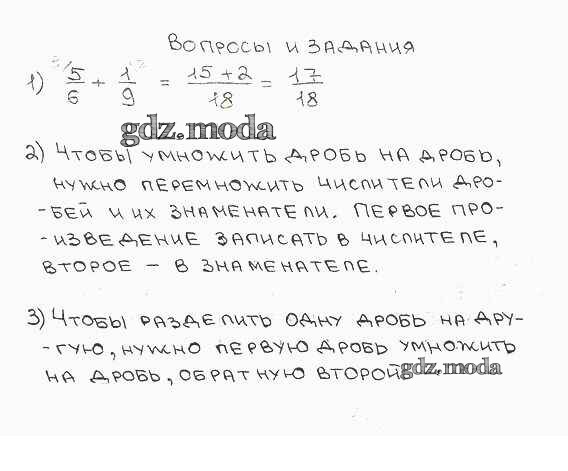 ВОПРОСЫ И ЗАДАНИЯ
1) 3/5/6 + 1/2/9 = 15+2/18 = 17/18
gdz.moda
2) ЧТОБЫ УМНОЖИТЬ ДРОБЬ НА ДРОБЬ,
НУЖНО ПЕРЕМНОЖИТЬ ЧИСЛИТЕЛИ ДРО-
-БЕЙ И ИХ ЗНАМЕНАТЕЛИ. ПЕРВОЕ ПРО-
-ИЗВЕДЕНИЕ ЗАПИСАТЬ В ЧИСЛИТЕЛЕ,
ВТОРОЕ – В ЗНАМЕНАТЕЛЕ.
3) ЧТОБЫ РАЗДЕЛИТЬ ОДНУ ДРОБЬ НА ДРУ-
-ГУЮ, НУЖНО ПЕРВУЮ ДРОБЬ УМНОЖИТЬ
НА ДРОБЬ, ОБРАТНУЮ ВТОРОЙ
gdz.moda